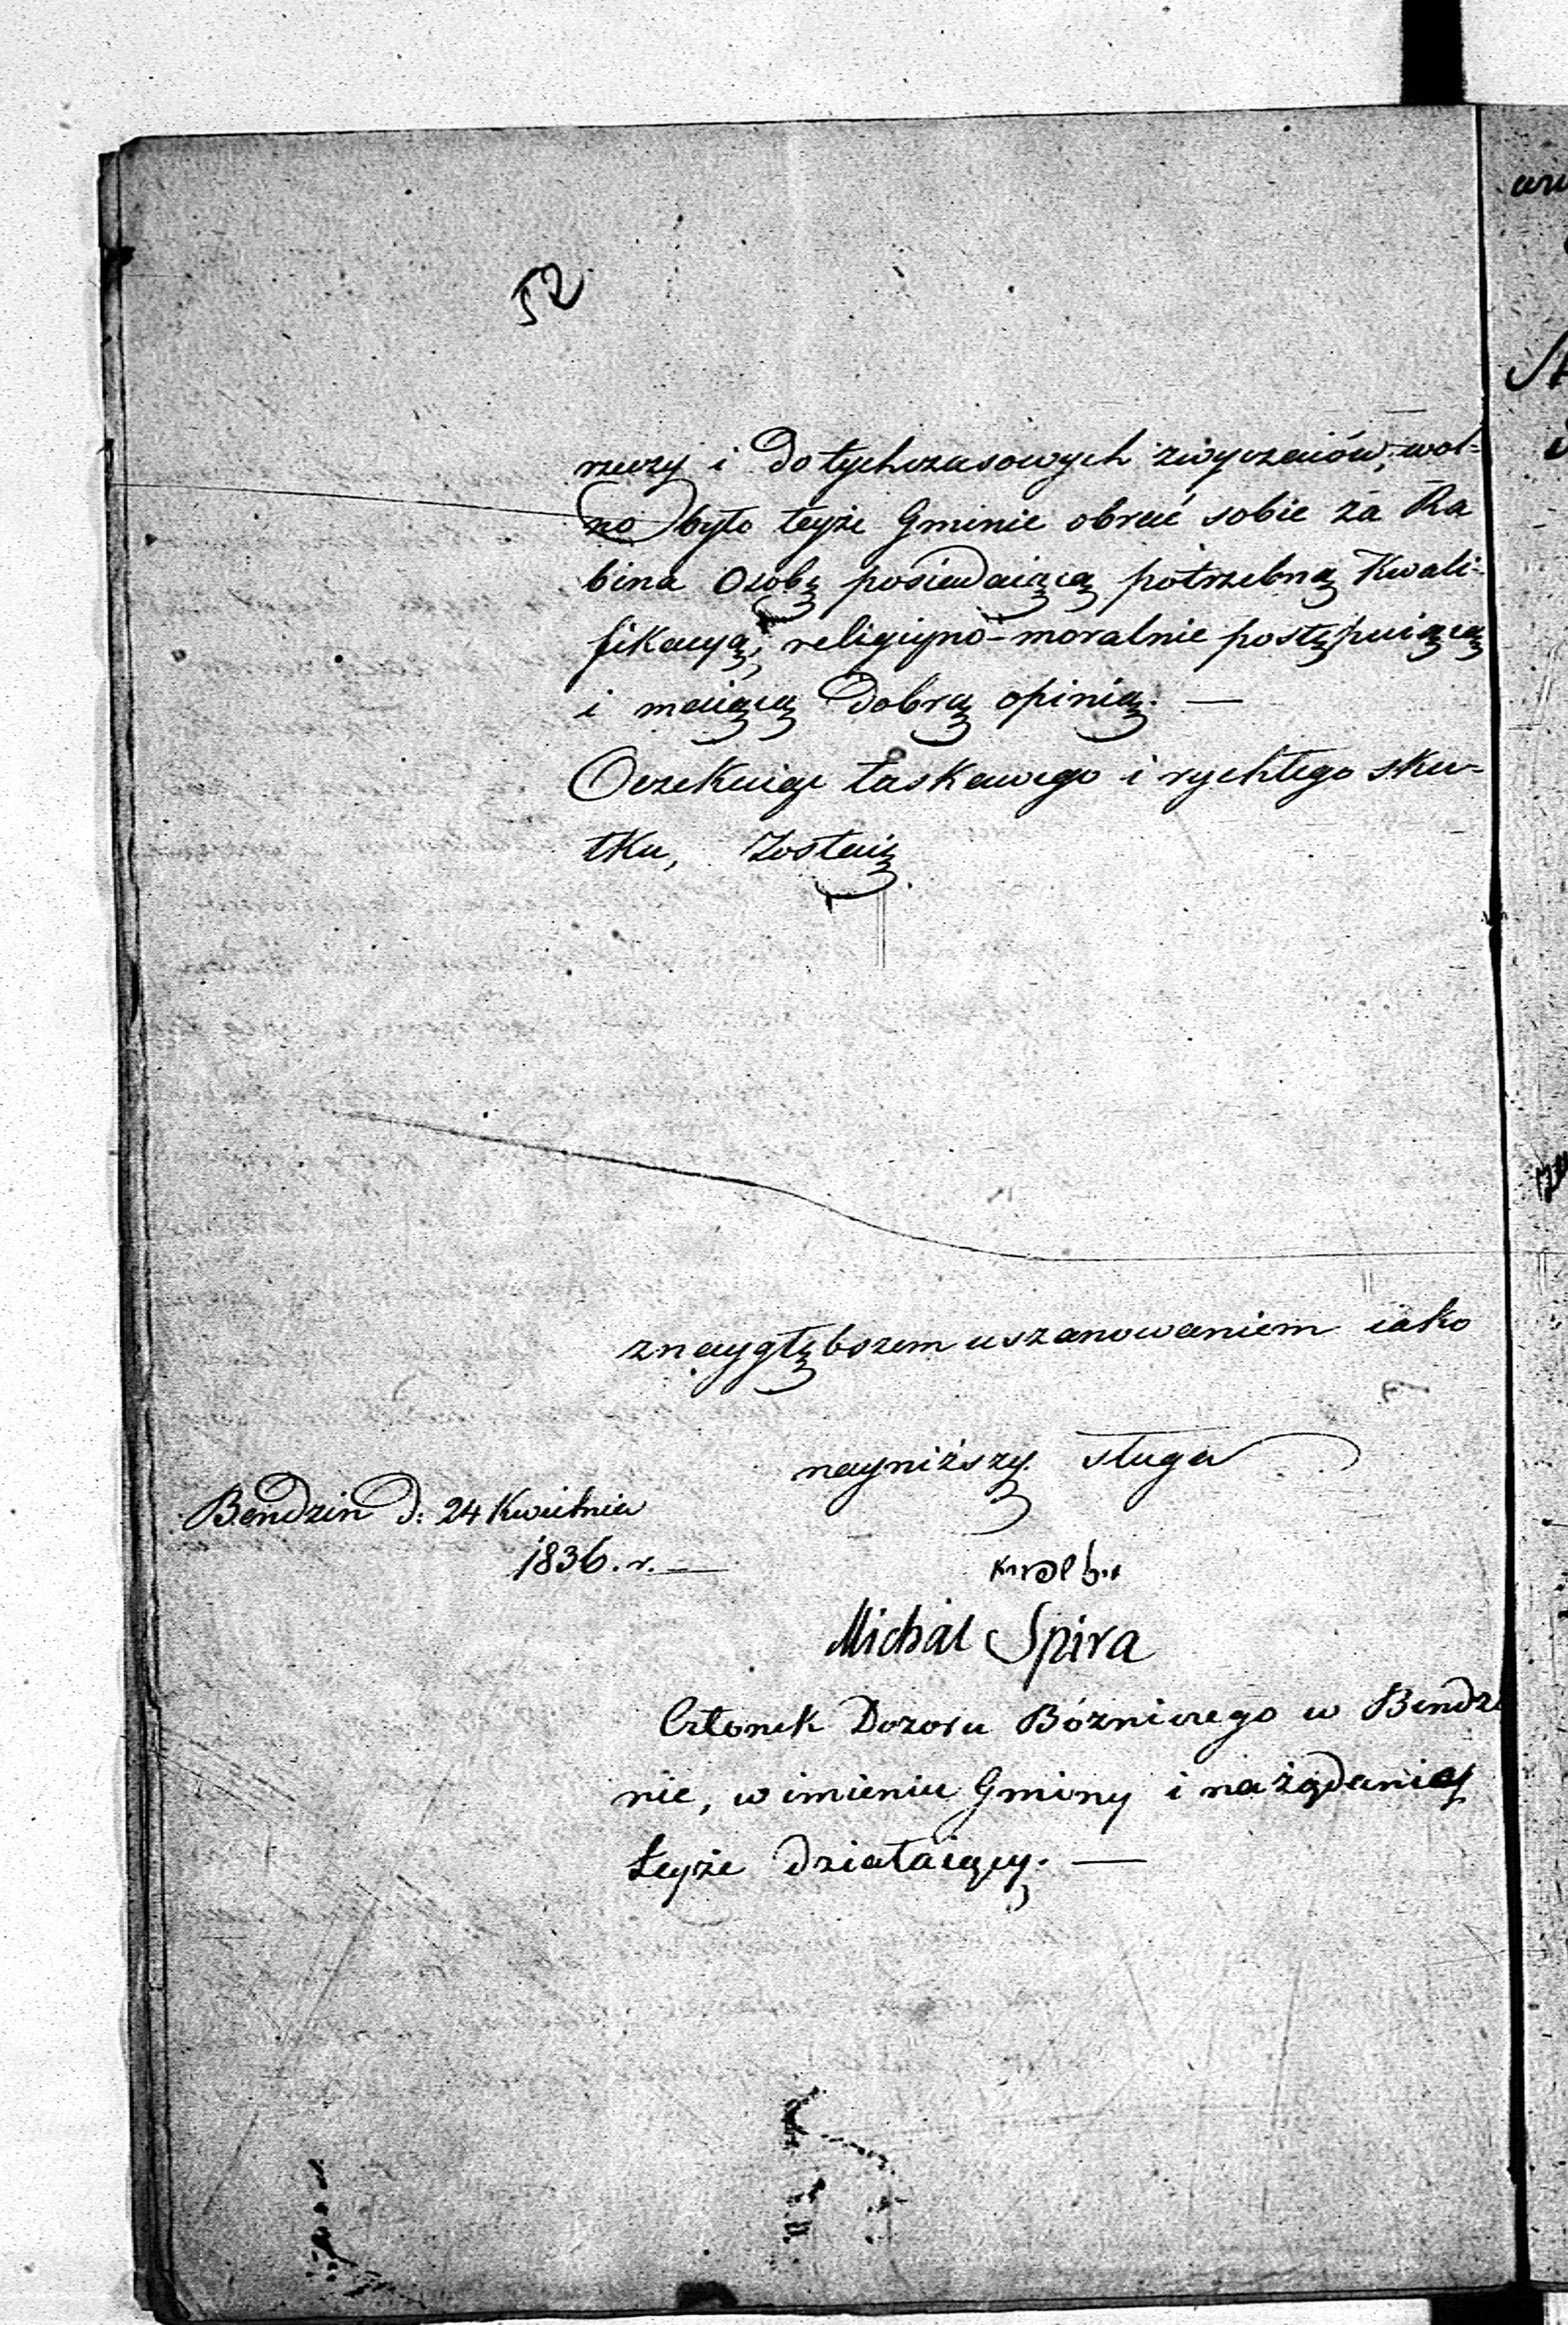 52
rzeczy i dotychczasowych zwyczaiów, wol-
no było teyże Gminie obrać sobie za Ra
bina Osobę posiadaiącą potrzebną Kwali-
fikacyą, religiyno-moralnie postępuiącą
i maiącą dobrą opinią. —
Oczekuiąc łaskawego i rychłego sku-
tku, Zostaię
z naygłębszem uszanowaniem iako
nayniższy sługa
Bendzin d: 24 Kwietnia
1836. r. —
Michal Spira
Członek Dozoru Bóżniczego w Bendzi
nie, w imieniu Gminy i na żądanie
teyże działaiący. —